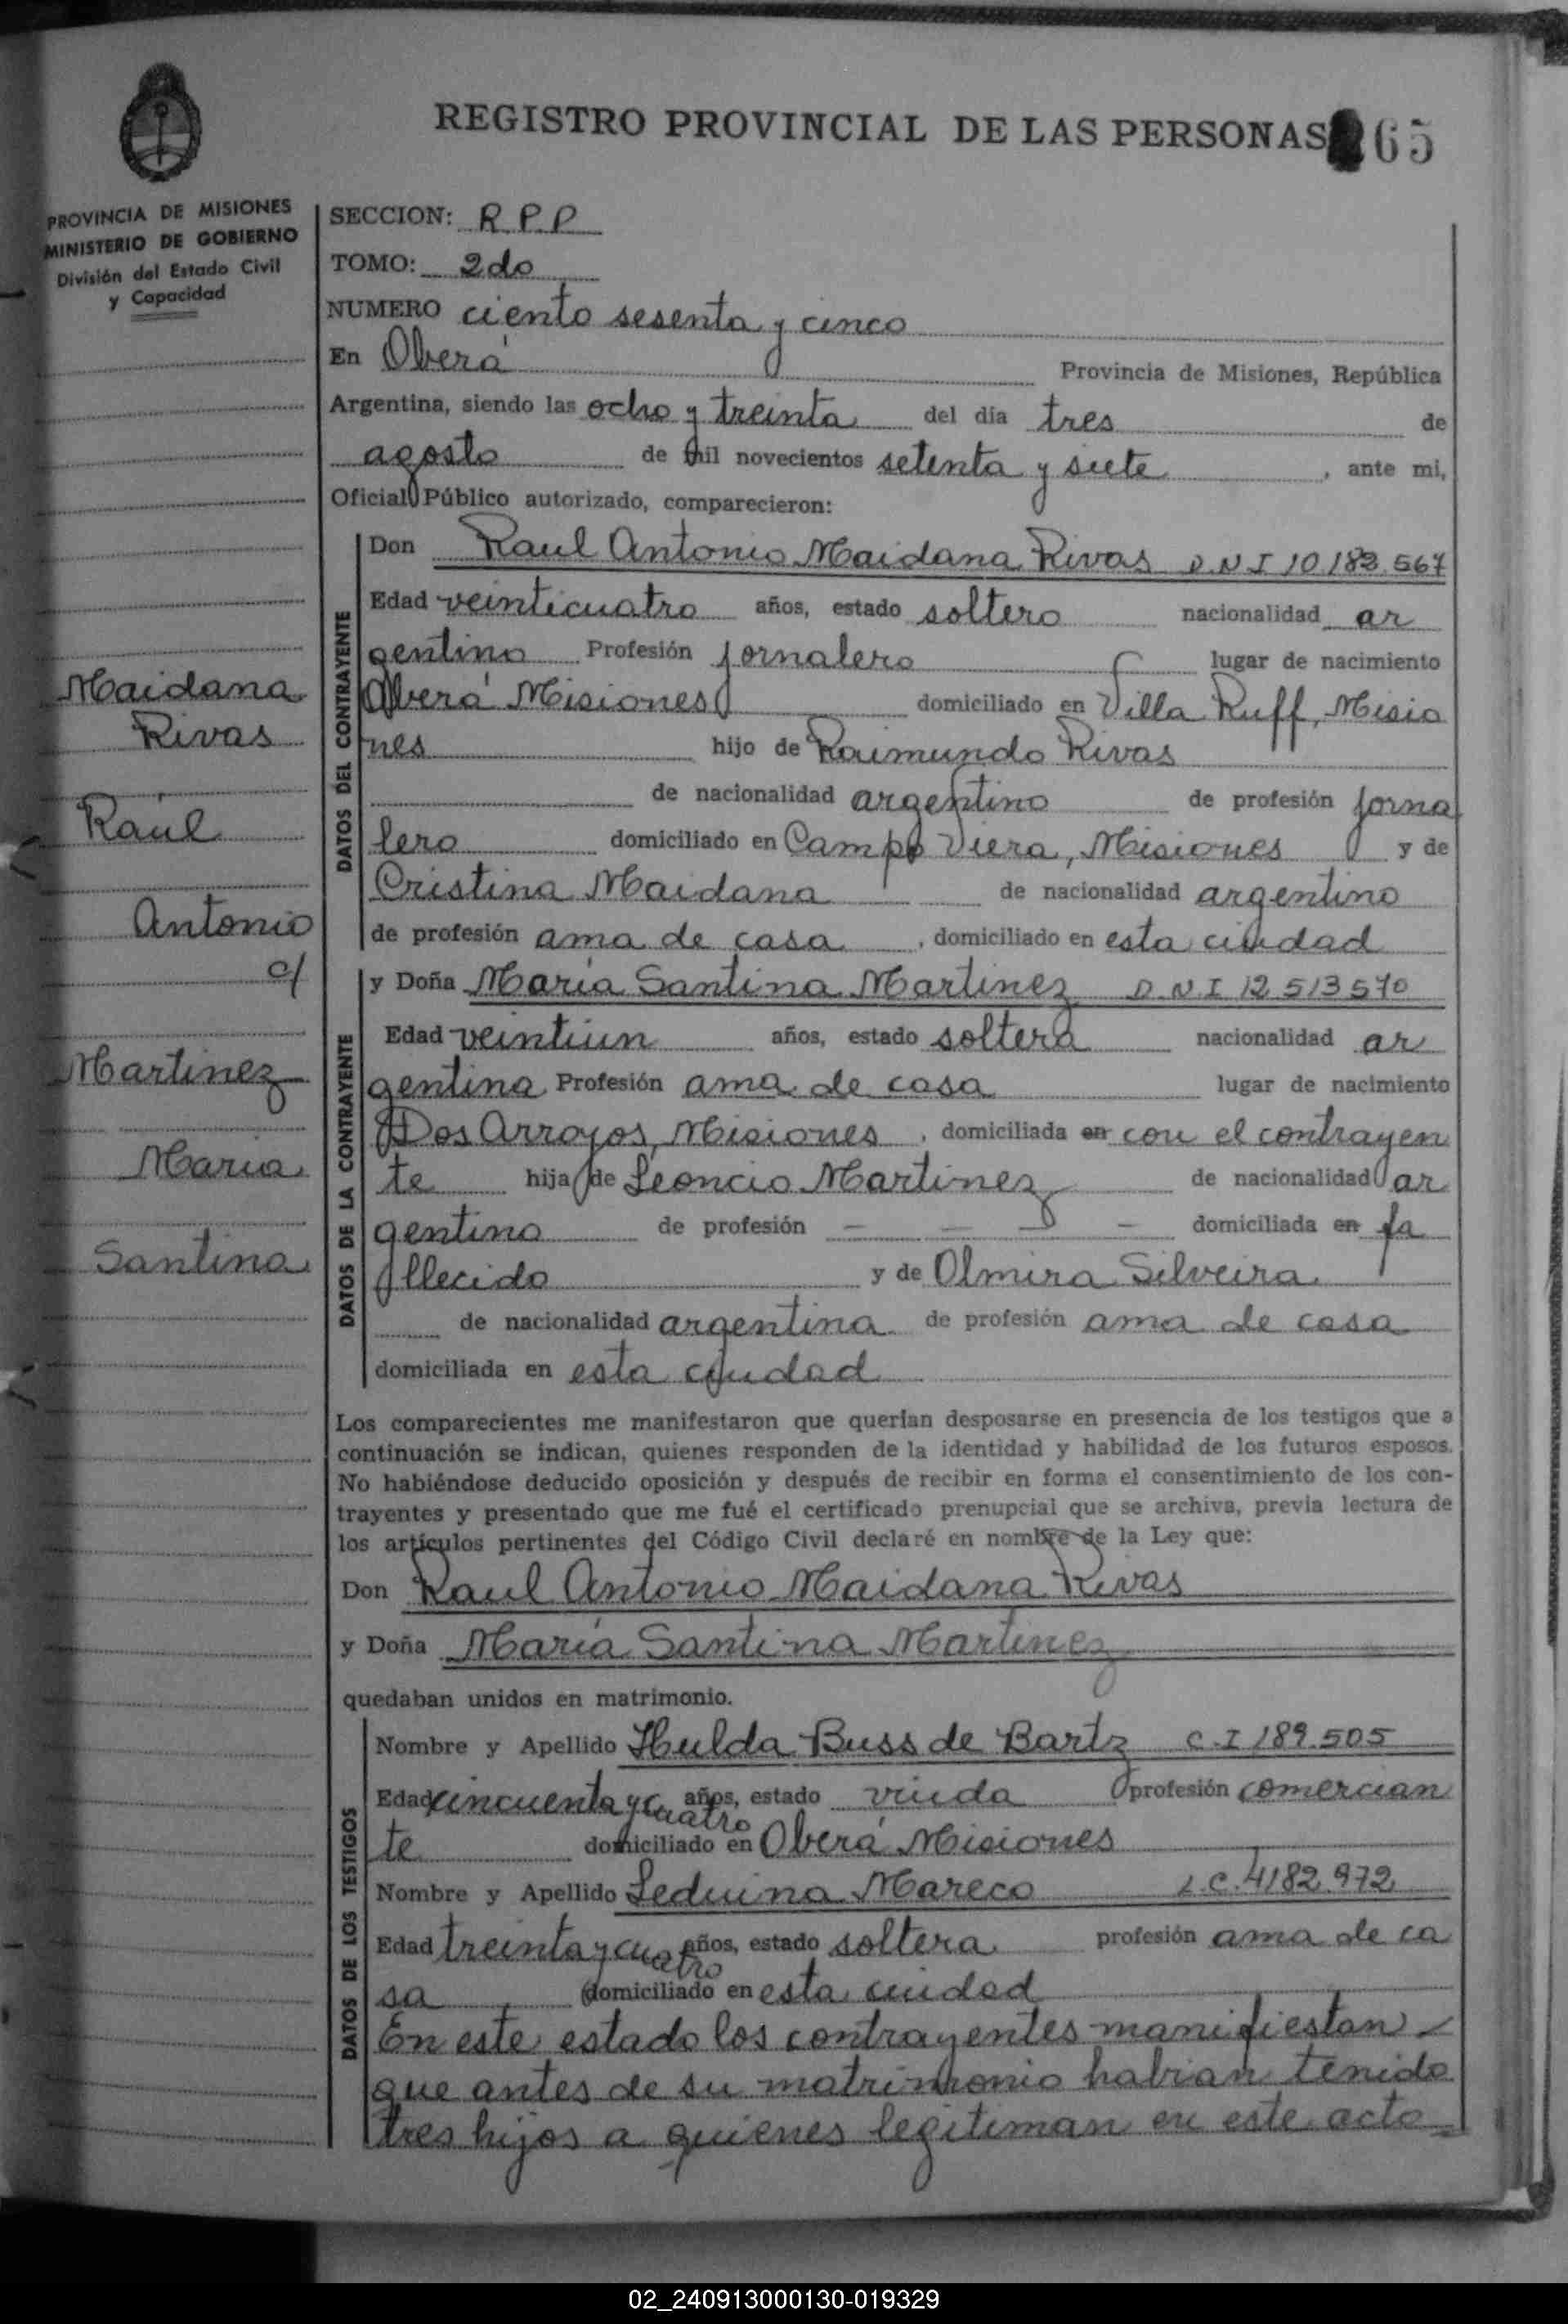 REGISTRO PROVINCIAL DE LAS PERSONAS 65
PROVINCIA DE MISIONES
MINISTERIO DE GOBIERNO
División del Estado Civil
y Capacidad
Maidana
Rivas
Raúl
Antonio
c/
Martinez
María
Santina
SECCION: R.P.P
TOMO: 2do
NUMERO ciento sesenta y cinco
En Oberá Provincia de Misiones, República
Argentina, siendo las ocho y treinta del día tres de
agosto de mil novecientos setenta y siete, ante mi,
Oficial Público autorizado, comparecieron:
DATOS DEL CONTRAYENTE
Don Raul Antonio Maidana Rivas D.N.I 10.182.567
Edad veinticuatro años, estado soltero nacionalidad ar
gentino Profesión jornalero lugar de nacimiento
Oberá Misiones domiciliado en Villa Ruff, Misio
nes hijo de Raimundo Rivas
de nacionalidad argentino de profesión jorna
lero domiciliado en Campo Viera, Misiones y de
Cristina Maidana de nacionalidad argentino
de profesión ama de casa, domiciliado en esta ciudad
DATOS DE LA CONTRAYENTE
y Doña María Santina Martinez D.N.I 12.513.570
Edad veintiun años, estado soltera nacionalidad ar
gentina Profesión ama de casa lugar de nacimiento
Dos Arroyos, Misiones, domiciliada en con el contrayen
te hija de Leoncio Martinez de nacionalidad ar
gentino de profesión — — — — domiciliada en fa
llecido y de Olmira Silveira
de nacionalidad argentina de profesión ama de casa
domiciliada en esta ciudad
Los comparecientes me manifestaron que querían desposarse en presencia de los testigos que a
continuación se indican, quienes responden de la identidad y habilidad de los futuros esposos.
No habiéndose deducido oposición y después de recibir en forma el consentimiento de los con-
trayentes y presentado que me fué el certificado prenupcial que se archiva, previa lectura de
los artículos pertinentes del Código Civil declaré en nombre de la Ley que:
Don Raul Antonio Maidana Rivas
y Doña María Santina Martinez
quedaban unidos en matrimonio.
DATOS DE LOS TESTIGOS
Nombre y Apellido Hulda Buss de Bartz C.I 189.505
Edad cincuenta y cuatro años, estado viuda profesión comercian
te domiciliado en Oberá Misiones
Nombre y Apellido Leduina Mareco L.C. 4182.972
Edad treinta y cuatro años, estado soltera profesión ama de ca
sa domiciliado en esta ciudad
En este estado los contrayentes manifiestan
que antes de su matrimonio habían tenido
tres hijos a quienes legitiman en este acto
02_240913000130-019329